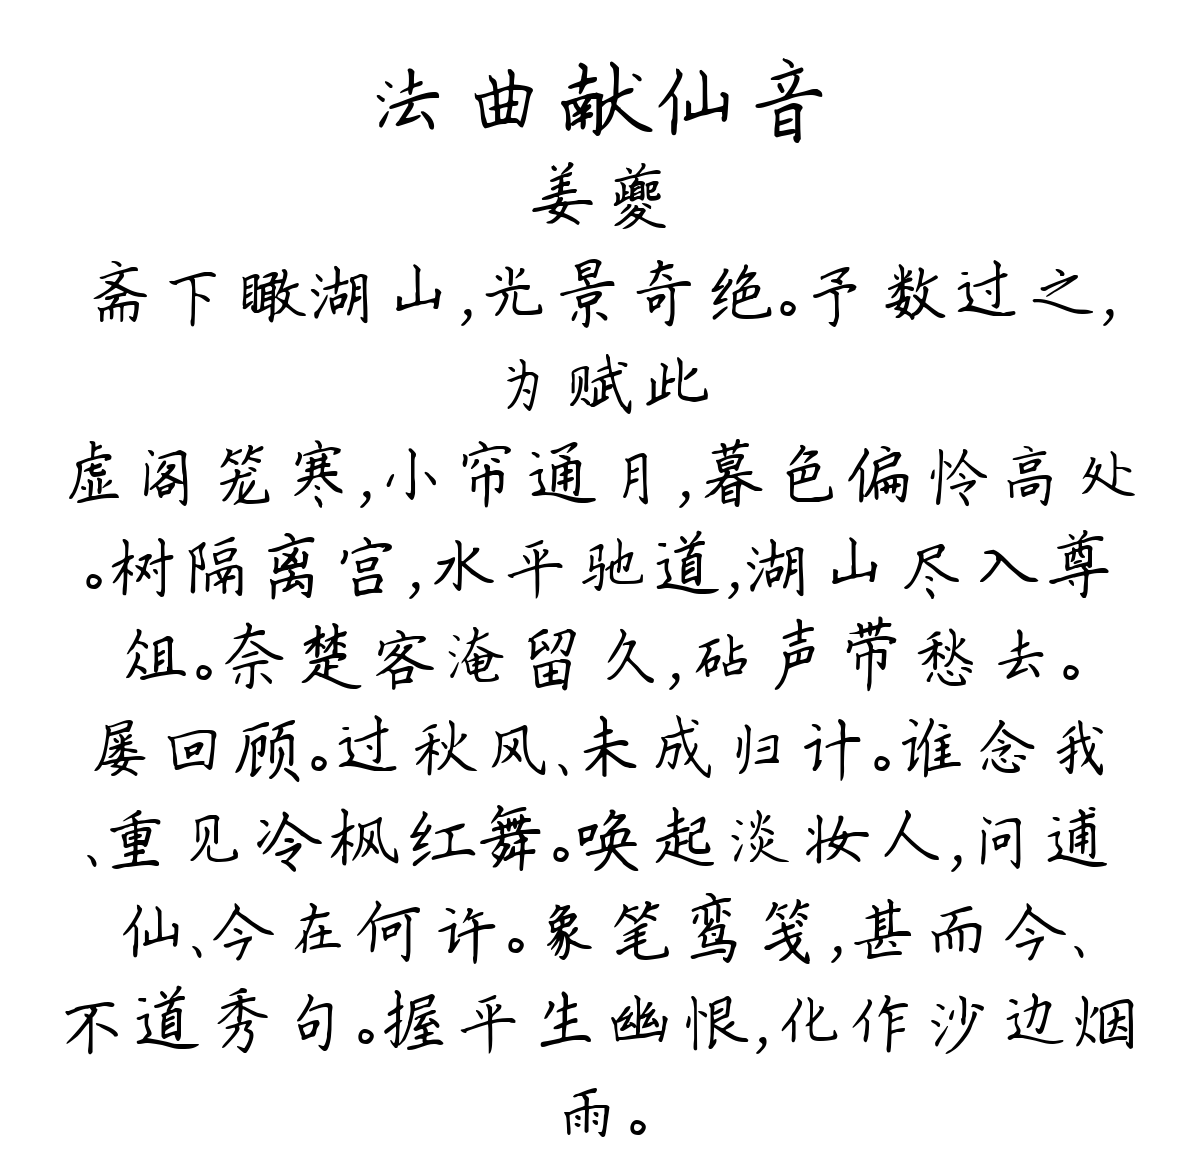 法曲献仙音
姜夔
斋下瞰湖山,光景奇绝。予数过之,
为赋此
虚阁笼寒,小帘通月,暮色偏怜高处
。树隔离宫,水平驰道,湖山尽入尊
俎。奈楚客淹留久,砧声带愁去。
屡回顾。过秋风、未成归计。谁念我
、重见冷枫红舞。唤起淡妆人,问逋
仙、今在何许。象笔鸾笺,甚而今、
不道秀句。握平生幽恨,化作沙边烟
雨。